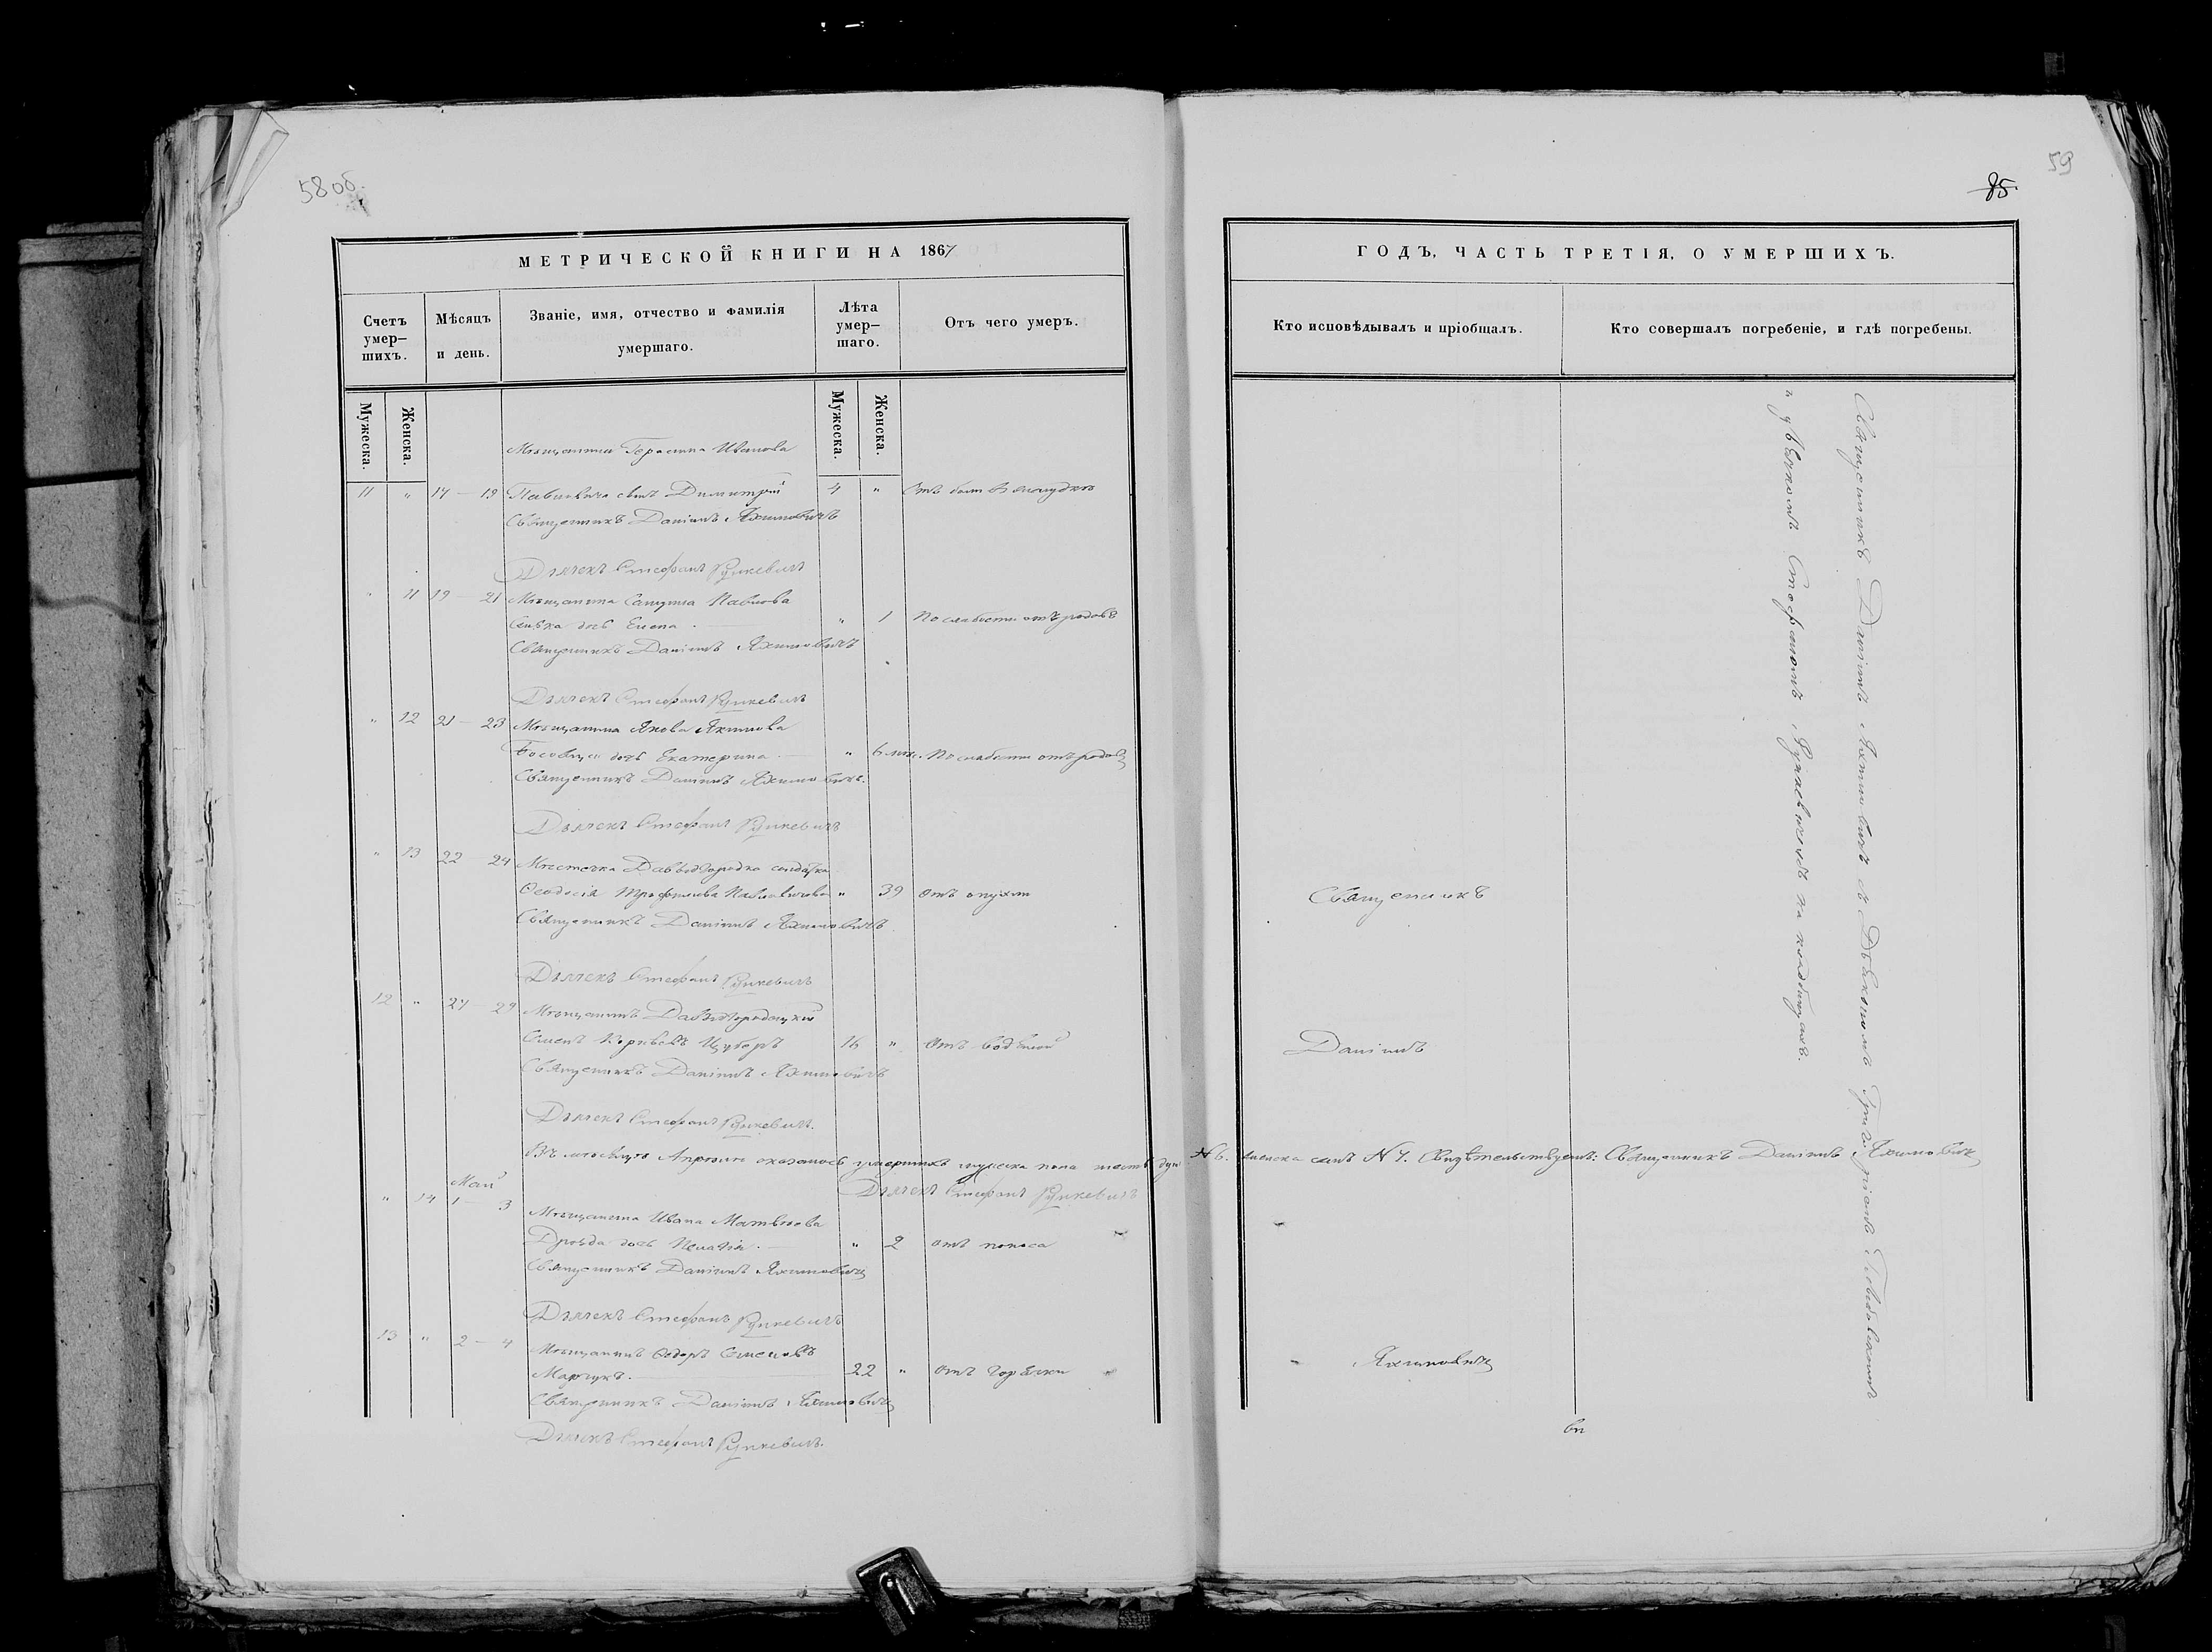 58 об.
МЕТРИЧЕСКОЙ КНИГИ НА 1867
Счетъ умер-
шихъ.
Мѣсяцъ
и день.
Званіе, имя, отчество и фамилія
умершаго.
Лѣта
умер-
шаго.
Отъ чего умеръ.
Мужеска.
Женска.
Мужеска.
Женска.
Мѣщанина Герасима Иванова
11 " 17 — 19 сынъ Димитрій 4 " Отъ боли въ желудкѣ
Священникъ Даніилъ Яхимовичъ
Дьячекъ Стефанъ Рункевичъ
" 11 19 — 21 Мѣщанина Павлова
дочь Елена " 1 По слабости отъ родовъ
Священникъ Даніилъ Яхимовичъ
Дьячекъ Стефанъ Рункевичъ
" 12 21 — 23 Мѣщанина Якова Якимова
дочь Екатерина " 6 мѣс. По слабости отъ родовъ
Священникъ Даніилъ Яхимовичъ.
Дьячекъ Стефанъ Рункевичъ
" 13 22 24 Мѣстечка Давыдгородка солдатка
Ѳеодосія Трофимова " 39 Отъ опухли
Священникъ Даніилъ Яхимовичъ
Дьячекъ Стефанъ Рункевичъ
12 " 27 — 29 Мѣщанинъ Давыдгородецкій
Семенъ 16 " Отъ водяной
Священникъ Даніилъ Яхимовичъ
Дьячекъ Стефанъ Рункевичъ.
Въ мѣсяцѣ Апрѣлѣ оказалось умершихъ мужеска пола шесть душ N 6. женска семь N 7. Свидѣтельствуемъ: Священникъ Даніилъ Яхимовичъ
Дьячекъ Стефанъ Рункевичъ
Май
" 14 1 — 3 Мѣщанина Ивана Матвѣева
Дрозда дочь Пелагія. " 2 отъ поноса
Священникъ Даніилъ Яхимовичъ
Дьячекъ Стефанъ Рункевичъ
13 " 2 — 4 Мѣщанинъ Ѳедоръ Семеновъ
Марчукъ. 22 " отъ горячки
Священникъ Даніилъ Яхимовичъ
Дьячекъ Стефанъ Рункевичъ.
59
85.
ГОДЪ, ЧАСТЬ ТРЕТІЯ, О УМЕРШИХЪ.
Кто исповѣдывалъ и пріобщалъ.
Кто совершалъ погребеніе, и гдѣ погребены.
Священникъ
Даніилъ
Яхимовичъ
Священникъ Даніилъ Яхимовичъ съ Дьякономъ Григоріемъ
и Стефаномъ Рункевичемъ на кладбищахъ.